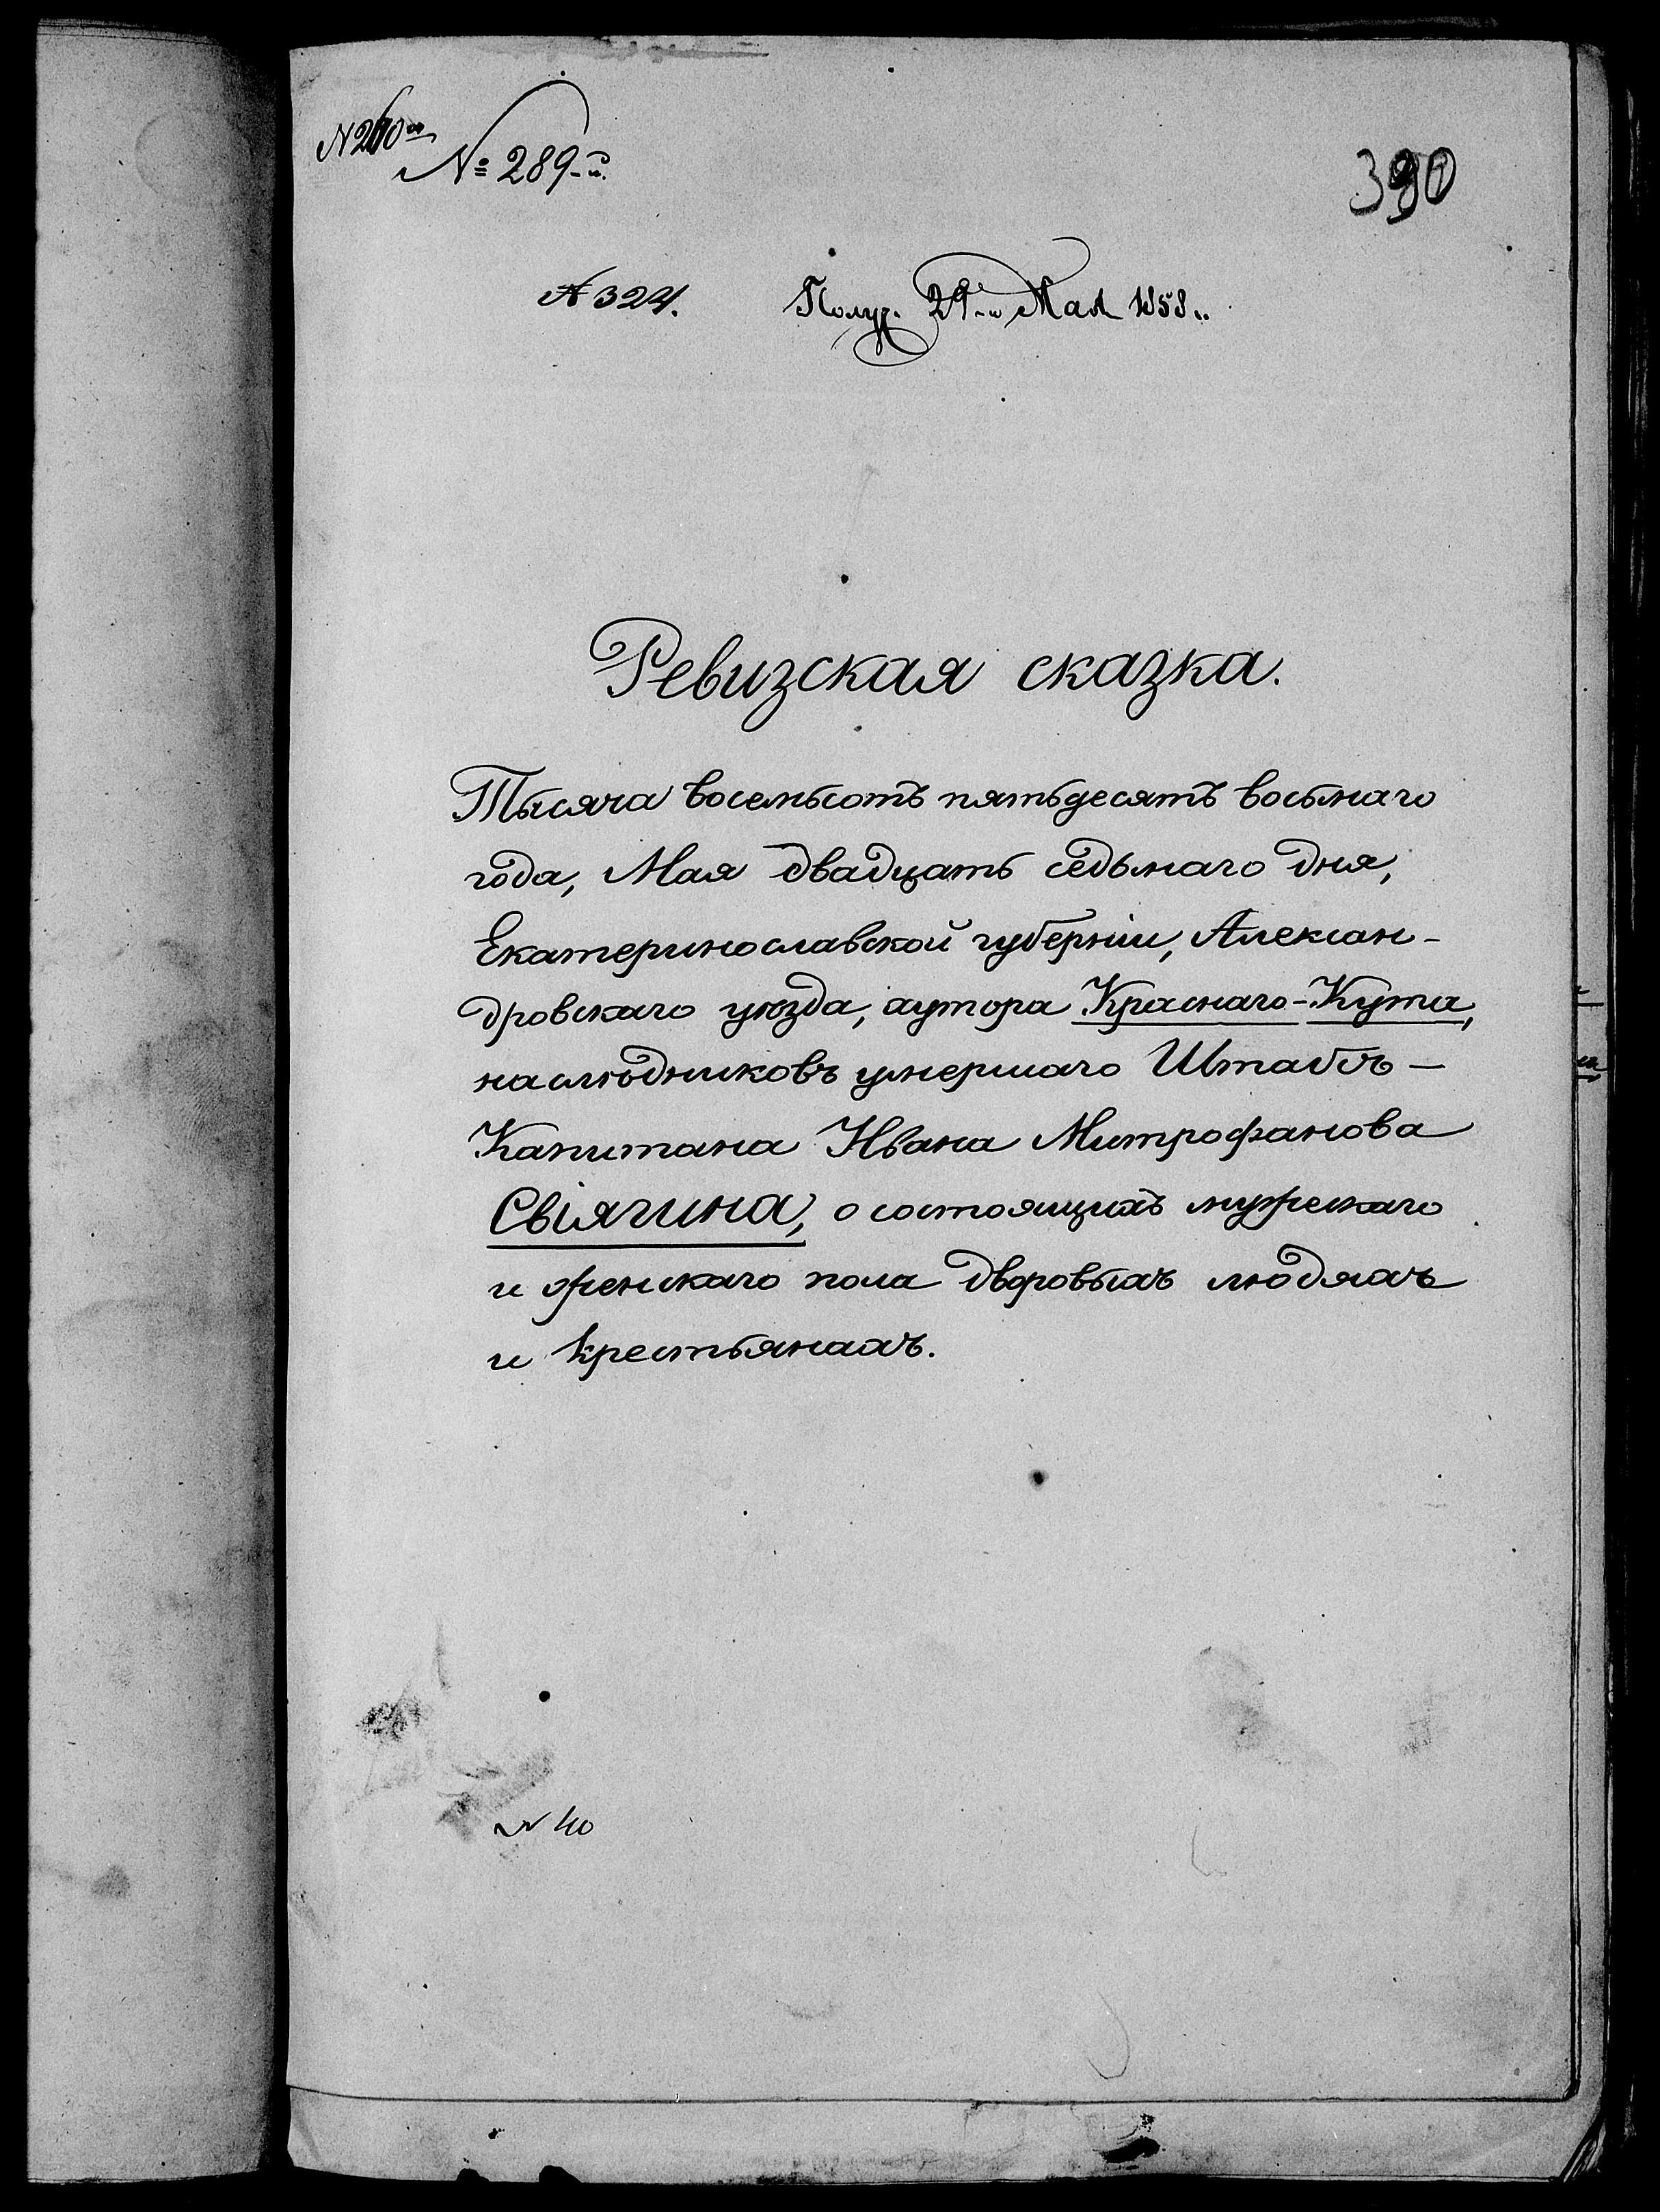 № 289-й.
390
№ 324. Получ. 29-го Мая 1858 г.
Ревизская сказка.
Тысяча восемьсотъ пятьдесятъ восьмаго
года, Мая двадцать седьмаго дня,
Екатеринославской губерніи, Алексан-
дровскаго уѣзда, хутора Краснаго-Кута,
наслѣдниковъ умершаго Штабсъ-
Капитана Ивана Митрофанова
Свіягина, о состоящихъ мужескаго
и женскаго пола дворовыхъ людяхъ
и крестьянахъ.
№ 40